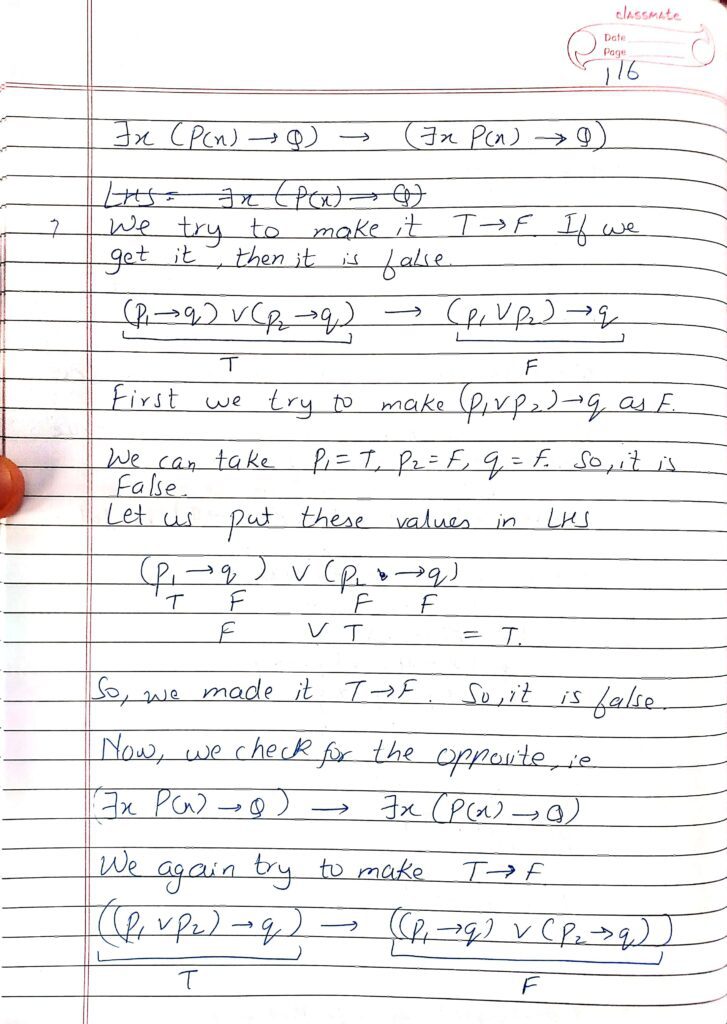 classmate
Date
Page
116
∃x (P(x) → Q) → (∃x P(x) → Q)
LHS = ∃x (P(x) → Q)
? We try to make it T→F. If we
get it, then it is false.
(p₁→q) ∨ (p₂→q) → (p₁∨p₂)→q
T F
First we try to make (p₁∨p₂)→q as F.
We can take p₁=T, p₂=F, q=F. So, it is
False.
Let us put these values in LHS
(p₁→q) ∨ (p₂→q)
T F F F
F ∨ T = T.
So, we made it T→F. So, it is false.
Now, we check for the opposite, ie
(∃x P(x) → Q) → ∃x (P(x) → Q)
We again try to make T→F
((p₁∨p₂)→q) → ((p₁→q) ∨ (p₂→q))
T F